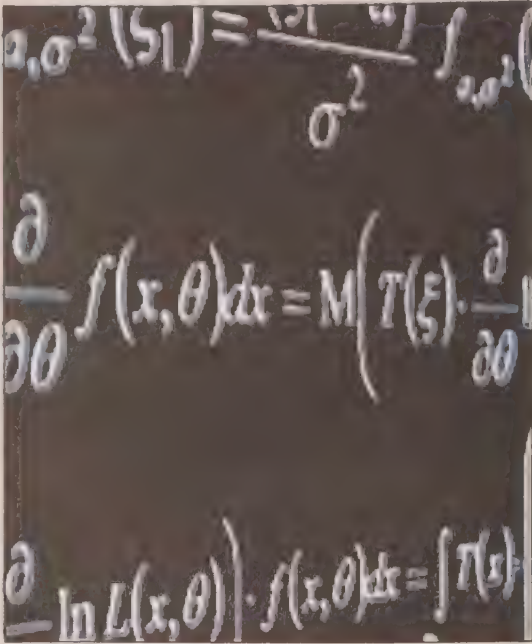 a,σ² (ξ₁) = (ξ₁ − a) / σ² f a,σ² (
∂/∂θ f(x,θ)dx = M( T(ξ) · ∂/∂θ
∂ ln L(x,θ) ) · f(x,θ)dx = ∫ T(x) ·